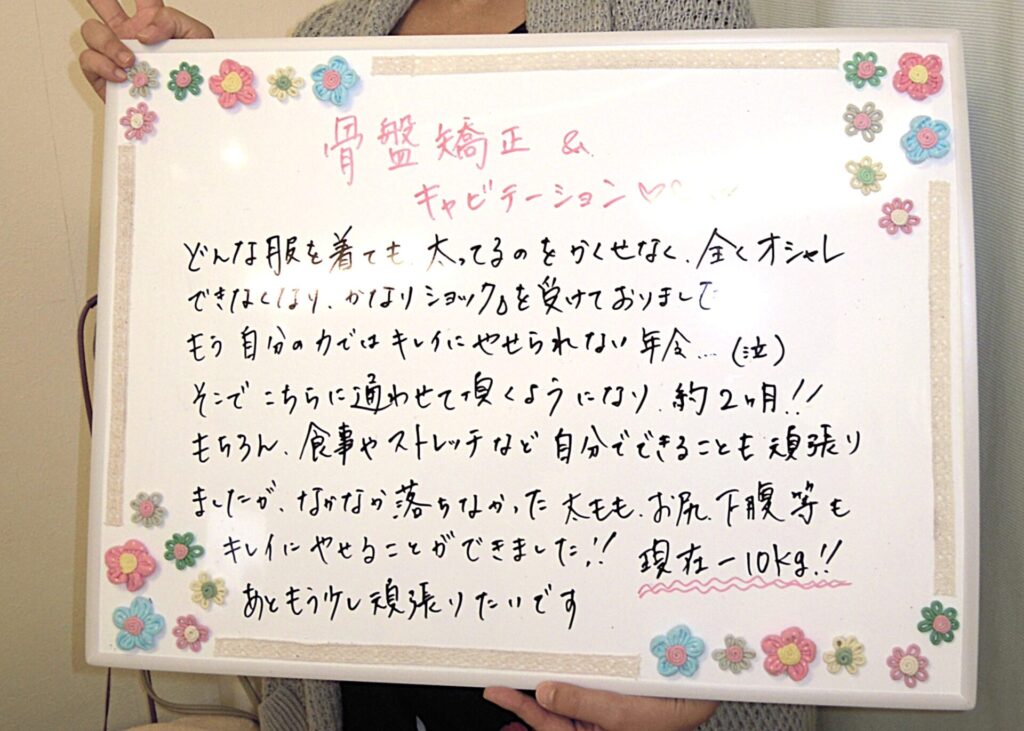 骨盤矯正 &
キャビテーション♡
どんな服を着ても、太ってるのをかくせなく、全くオシャレ
できなくなり、かなりショックを受けておりました
もう自分の力ではキレイにやせられない年令…(泣)
そこでこちらに通わせて頂くようになり、約2ヶ月!!
もちろん、食事やストレッチなど自分でできることも頑張り
ましたが、なかなか落ちなかった太もも、お尻、下腹等も
キレイにやせることができました!! 現在-10kg!!
あともう少し頑張りたいです